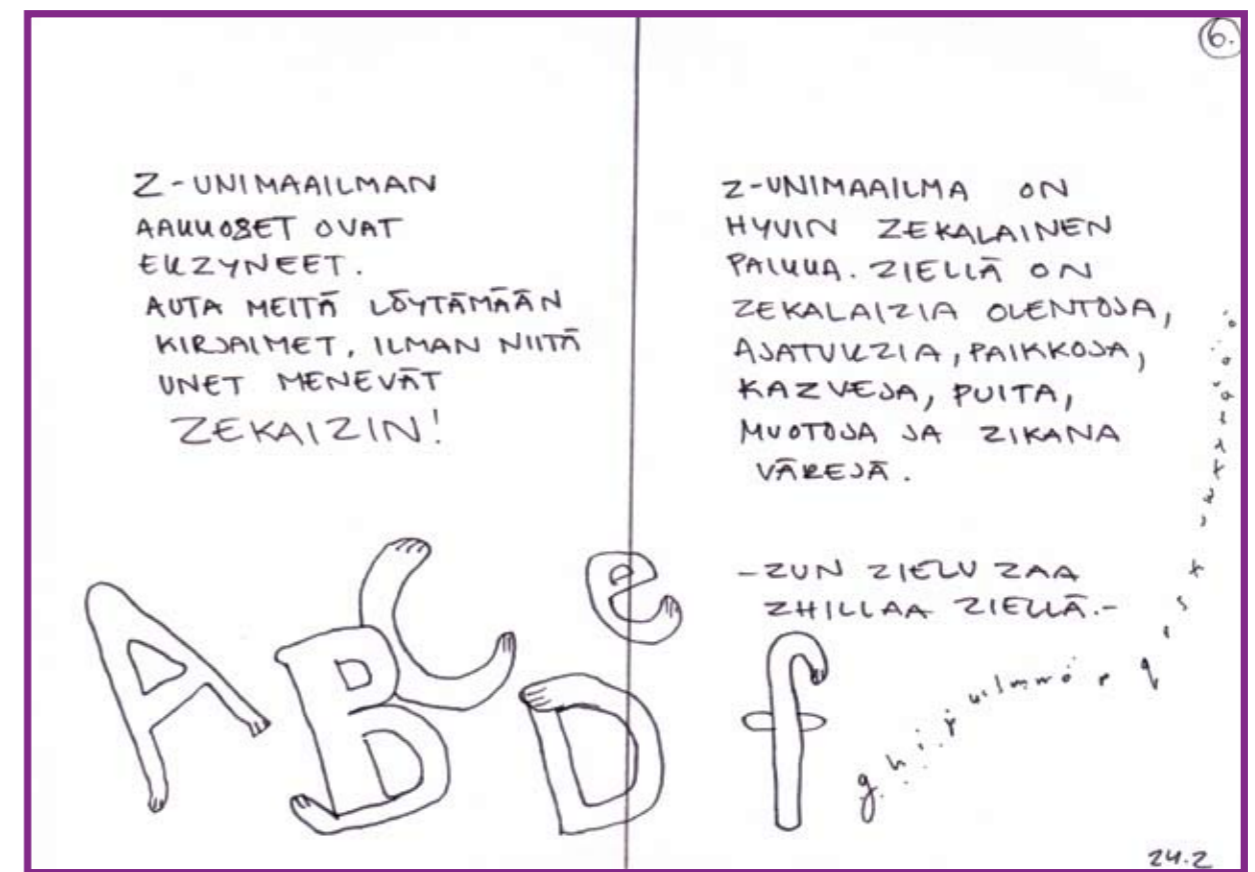 6.
Z-UNIMAAILMAN
AAKKOZET OVAT
EKZYNEET.
AUTA MEITÄ LÖYTÄMÄÄN
KIRJAIMET, ILMAN NIITÄ
UNET MENEVÄT
ZEKAIZIN!
Z-UNIMAAILMA ON
HYVIN ZEKALAINEN
PAIKKA. ZIELLÄ ON
ZEKALAIZIA OLENTOJA,
AJATUKZIA, PAIKKOJA,
KAZVEJA, PUITA,
MUOTOJA JA ZIKANA
VÄREJÄ.
-ZUN ZIELU ZAA
ZHILLAA ZIELLÄ.-
A B C D e f g h i j k l m n o p q
24.2